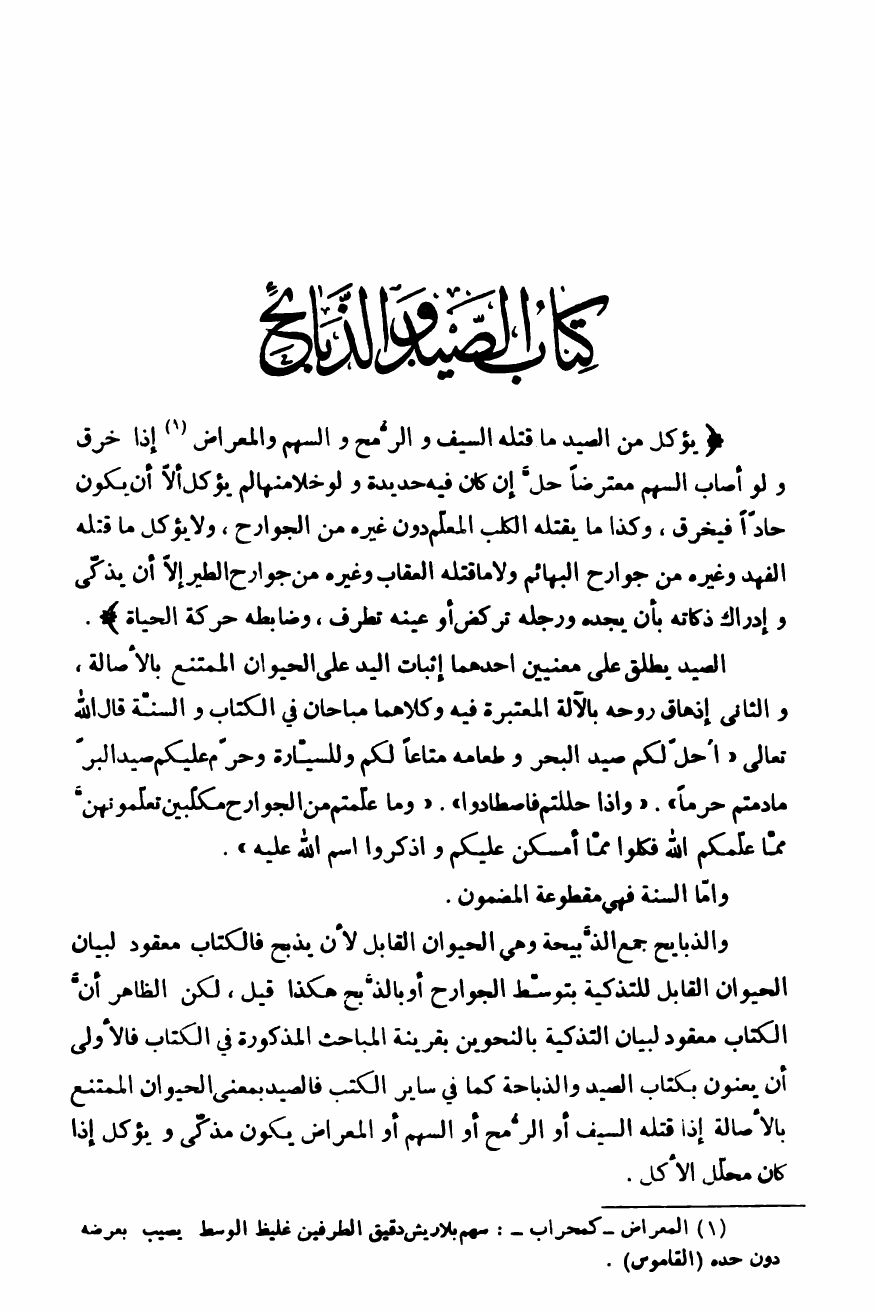 كتاب الصيد والذبائح
﴿ يؤكل من الصيد ما قتله السيف و الرُّمح و السهم والمعراض (١) إذا خرق
و لو أصاب السهم معترضاً حلَّ إن كان فيه حديدة و لو خلا منها لم يؤكل ألاّ أن يكون
حادّاً فيخرق ، وكذا ما يقتله الكلب المعلّم دون غيره من الجوارح ، ولا يؤكل ما قتله
الفهد وغيره من جوارح البهائم ولا ما قتله العقاب وغيره من جوارح الطير إلاّ أن يذكّى
و إدراك ذكاته بأن يجده ورجله تركض أو عينه تطرف ، وضابطه حركة الحياة ﴾ .
الصيد يطلق على معنيين احدهما إثبات اليد على الحيوان الممتنع بالأصالة ،
و الثانى إذهاق روحه بالآلة المعتبرة فيه وكلاهما مباحان في الكتاب و السنّة قال الله
تعالى « اُحلّ لكم صيد البحر و طعامه متاعاً لكم وللسيّارة وحرّم عليكم صيد البرّ
مادمتم حرماً» . « واذا حللتم فاصطادوا» . « وما علّمتم من الجوارح مكلّبين تعلّمونهنَّ
ممّا علّمكم الله فكلوا ممّا أمسكن عليكم و اذكروا اسم الله عليه » .
وامّا السنة فهي مقطوعة المضمون .
والذبايح جمع الذَّبيحة وهي الحيوان القابل لأن يذبح فالكتاب معقود لبيان
الحيوان القابل للتذكية بتوسّط الجوارح أو بالذَّبح هكذا قيل ، لكن الظاهر أنَّ
الكتاب معقود لبيان التذكية بالنحوين بقرينة المباحث المذكورة في الكتاب فالأولى
أن يعنون بكتاب الصيد والذباحة كما في ساير الكتب فالصيد بمعنى الحيوان الممتنع
بالأصالة إذا قتله السيف أو الرُّمح أو السهم أو المعراض يكون مذكّى و يؤكل إذا
كان محلّل الأكل .
(١) المعراض ـ كمحراب ـ : سهم بلاريش دقيق الطرفين غليظ الوسط يصيب بعرضه
دون حده (القاموس) .